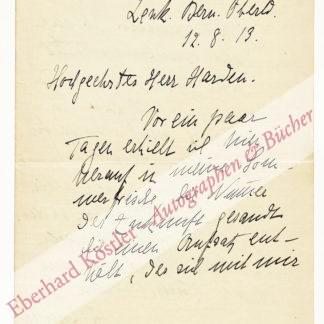 Lenk. Bern. Oberld.
12. 8. 13.
Hochgeehrter Herr Harden.
Vor ein paar
Tagen erhielt ich hier
herauf in meine Som-
merfrische die Nummer
der Zukunft gesandt
die einen Aufsatz ent-
hält, der sich mit mir
Eberhard Köstler Autographen & Bücher